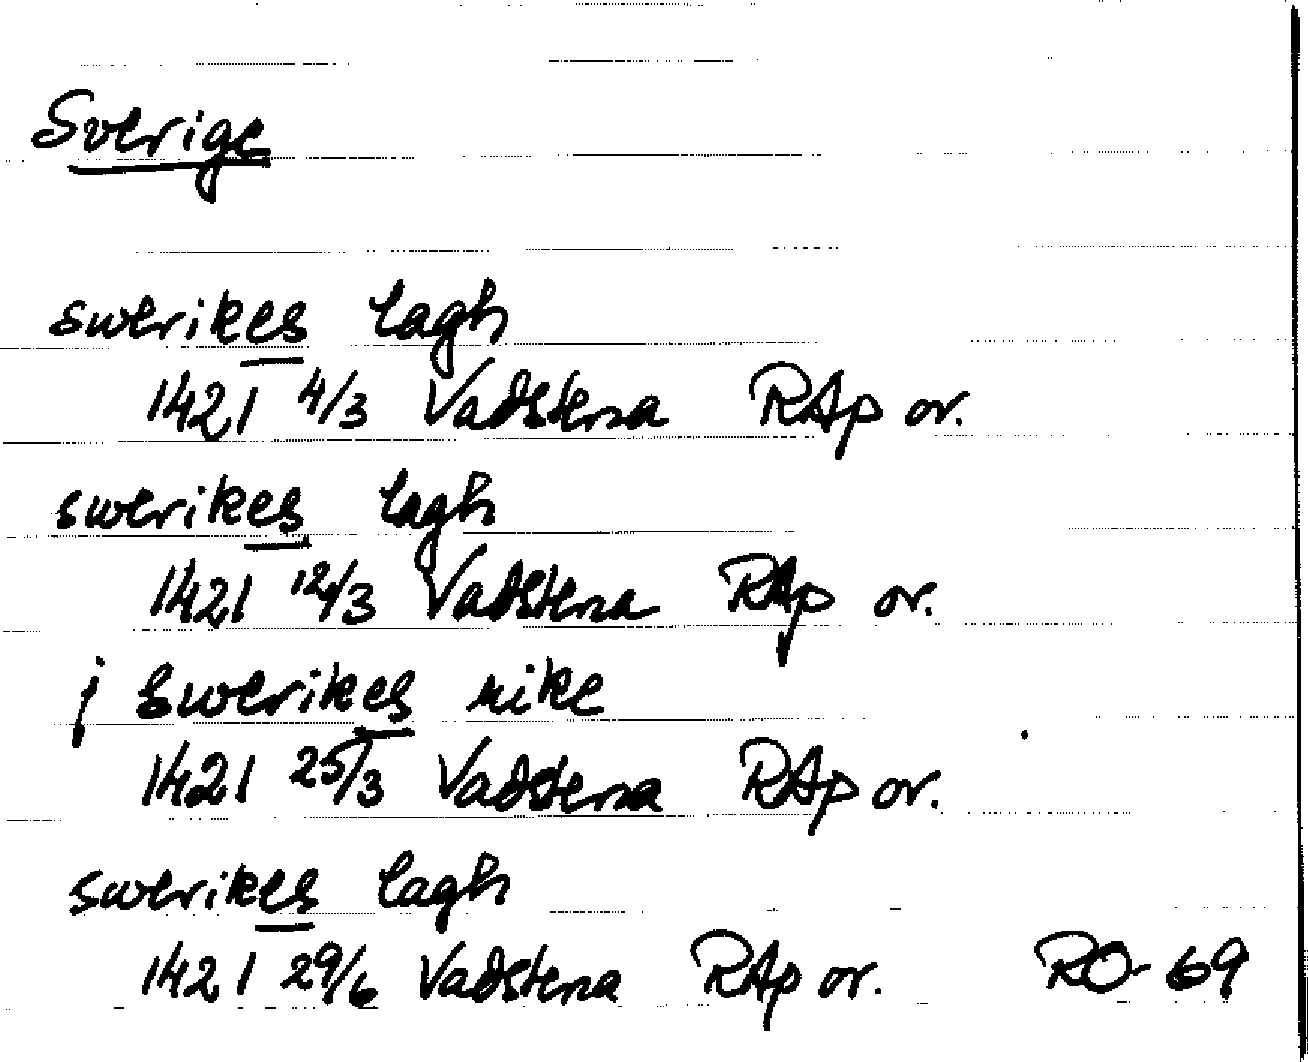 Sverige
swerikes lagh
1421 4/3 Vadstena RAp or.
swerikes lagh
1421 12/3 Vadstena RAp or.
j swerikes rike
1421 25/3 Vadstena RAp or.
swerikes lagh
1421 29/6 Vadstena RAp or. RO-69